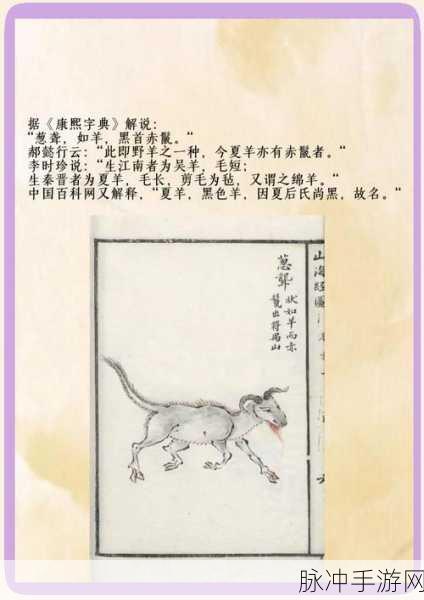 据《康熙字典》解说：
“葱聋，如羊，黑首赤鬣。“
郝懿行云：“此即野羊之一种，今夏羊亦有赤鬣者。“
李时珍说：“生江南者为吴羊，毛短；
生秦晋者为夏羊，毛长，剪毛为毡，又谓之绵羊。“
中国百科网又解释，“夏羊，黑色羊，因夏后氏尚黑，故名。“
葱聾
狀如羊而赤
鬛出符禺山
山海經圖
脉冲手游网